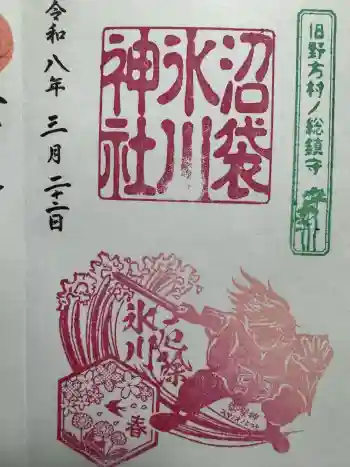 旧野方村ノ総鎮守
沼袋
氷川
神社
令和八年三月二十二日
氷川
春